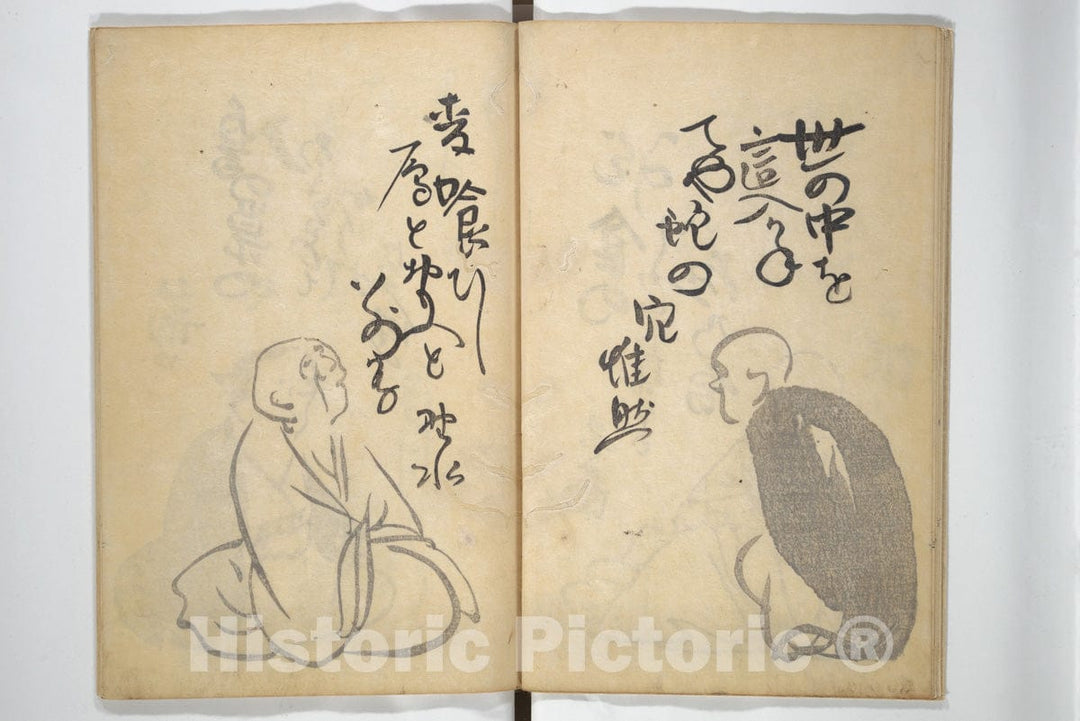 世の中を
這入かね
てや蛇の
穴
惟然
麦喰ひし
鴈と思へと
野水
Historic Pictoric ®